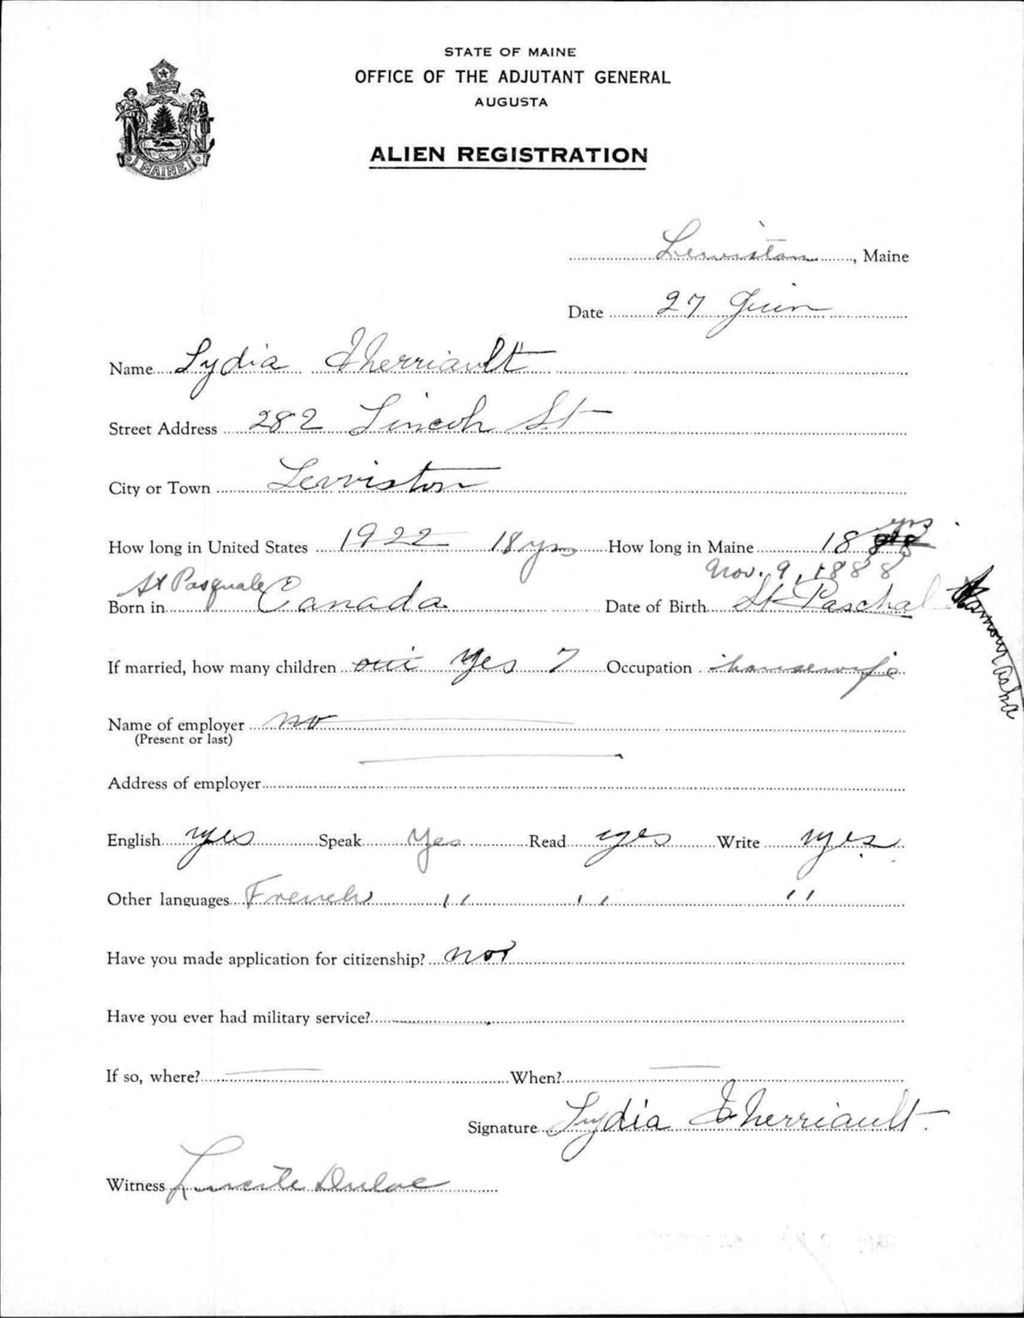 STATE OF MAINE
OFFICE OF THE ADJUTANT GENERAL
AUGUSTA
ALIEN REGISTRATION
MAINE
Lewiston, Maine
Date 27 Juin
Name Lydia Therriault
Street Address 282 Lincoln St
City or Town Lewiston
How long in United States 1922 18 yrs How long in Maine 18 yrs
St Pasquale Nov. 9, 1888
Born in Canada Date of Birth St Paschal Kamouraska
If married, how many children oui Yes 7 Occupation housewife
Name of employer no
(Present or last)
Address of employer
English yes Speak Yes Read yes Write yes
Other languages French " " "
Have you made application for citizenship? no
Have you ever had military service?
If so, where? When?
Signature Lydia Therriault.
Witness Lucile Dulac